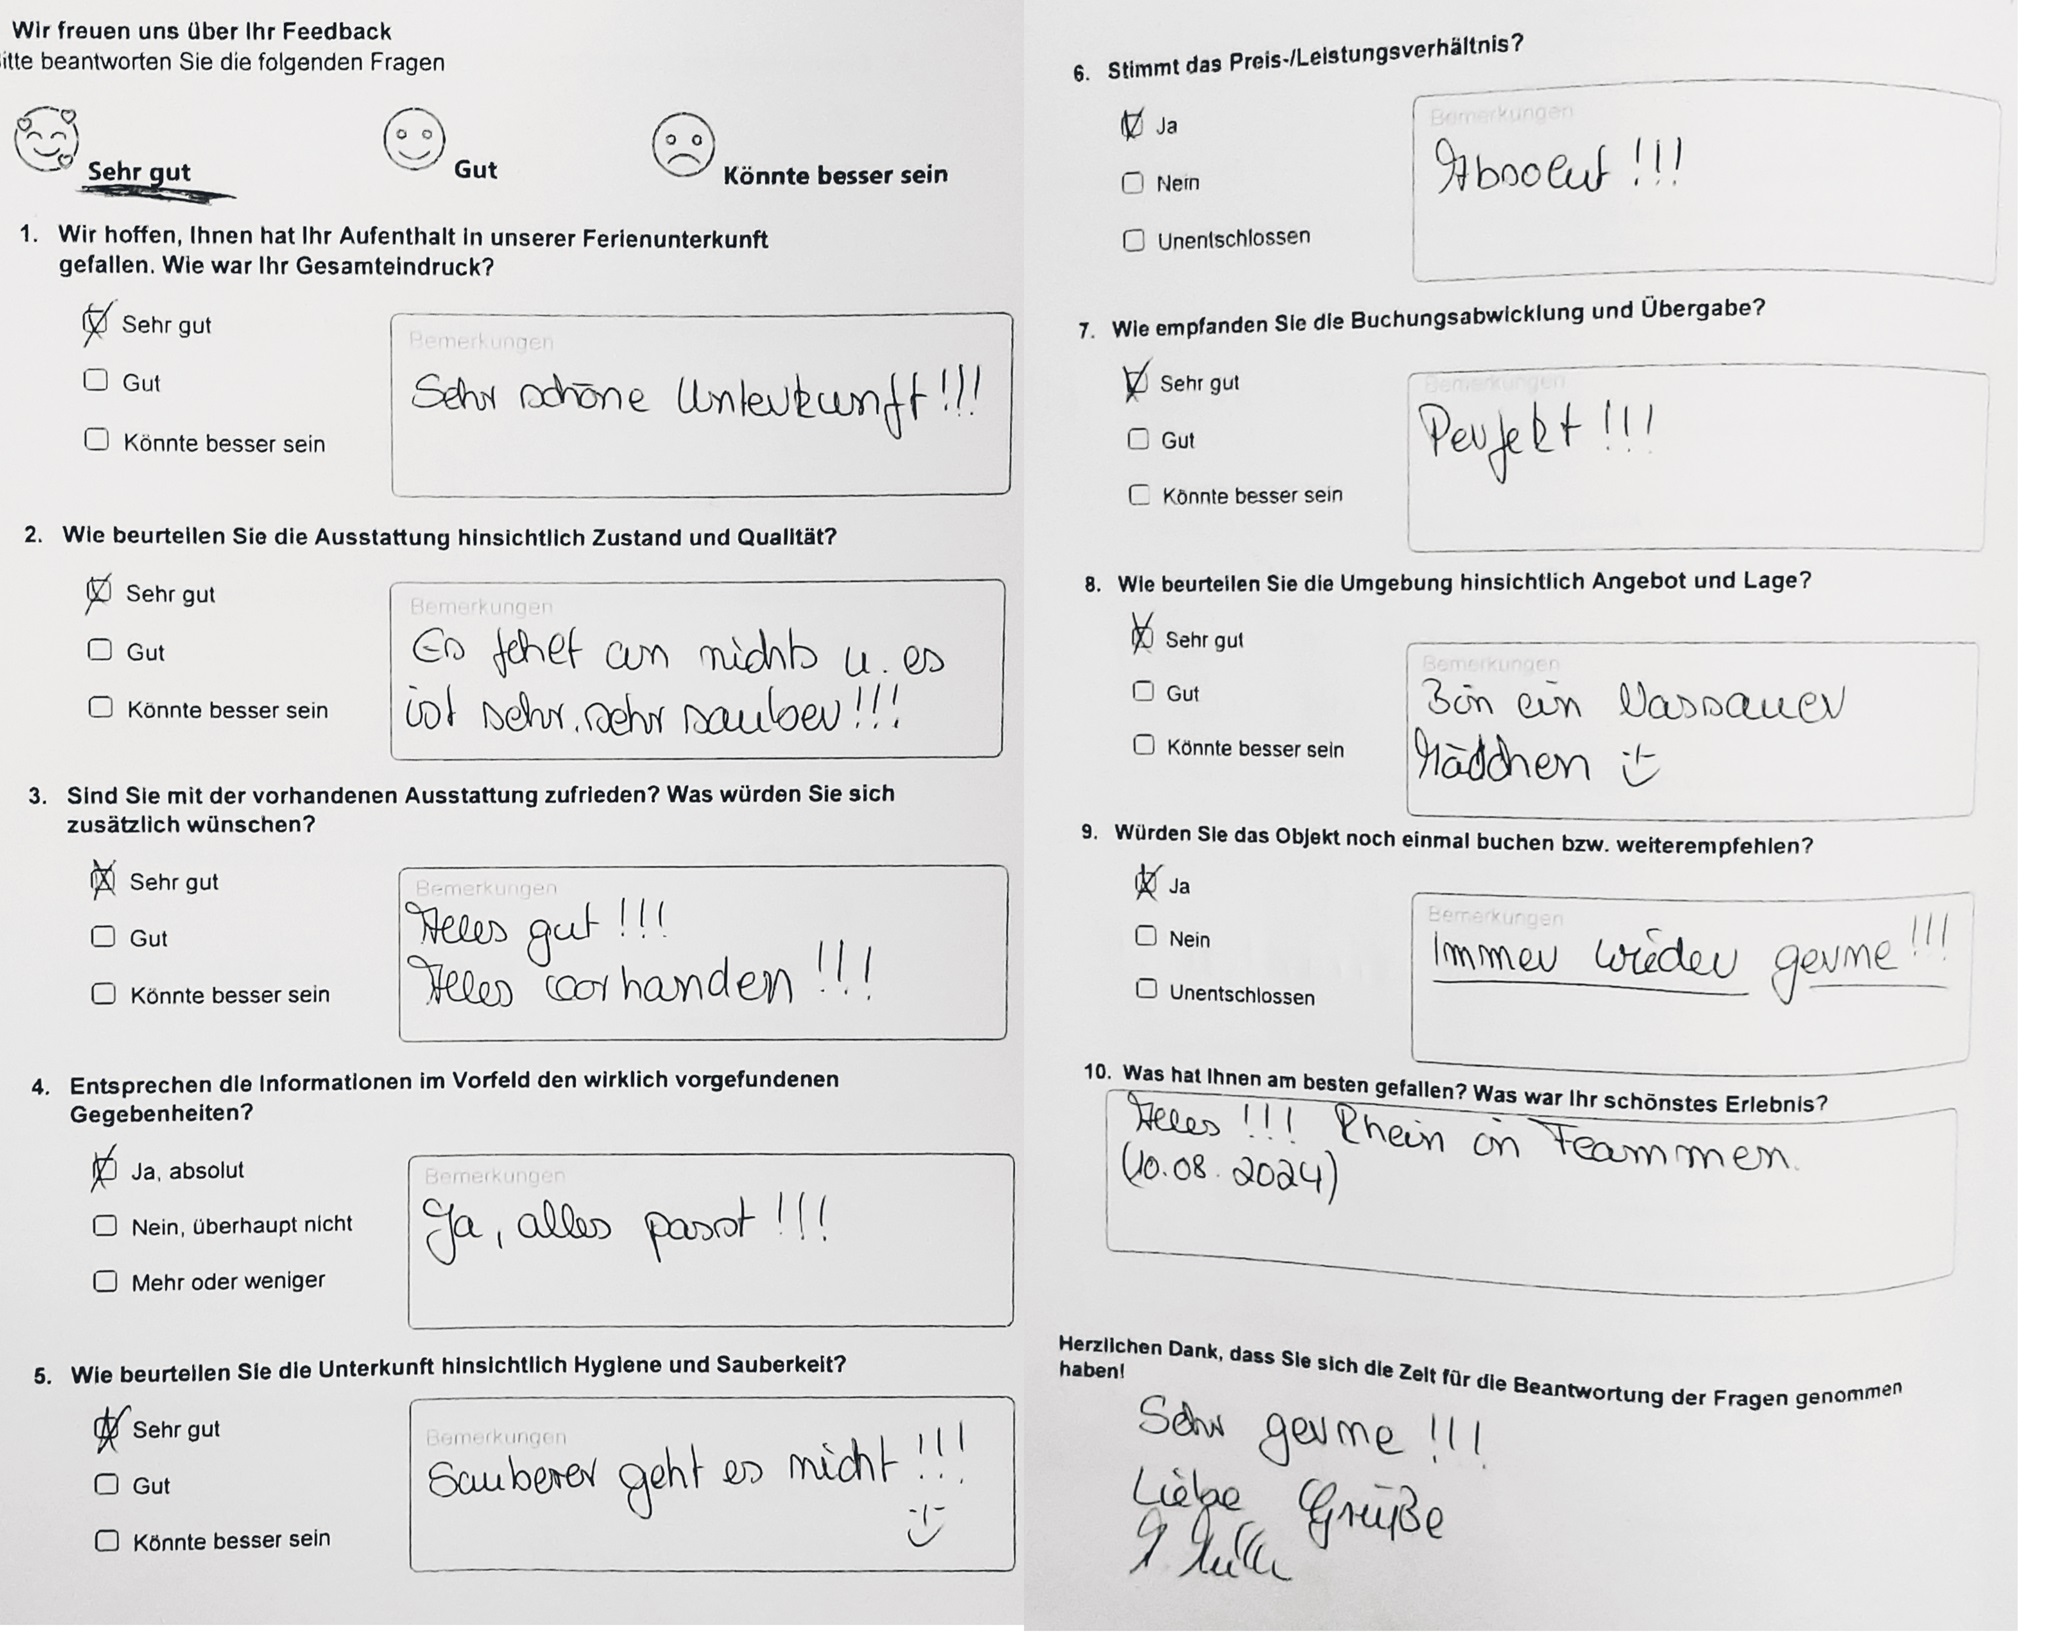 Wir freuen uns über Ihr Feedback
itte beantworten Sie die folgenden Fragen
Sehr gut
Gut
Könnte besser sein
1. Wir hoffen, Ihnen hat Ihr Aufenthalt in unserer Ferienunterkunft
gefallen. Wie war Ihr Gesamteindruck?
Sehr gut
Gut
Könnte besser sein
Bemerkungen
Sehr schöne Unterkunft!!!
2. Wie beurteilen Sie die Ausstattung hinsichtlich Zustand und Qualität?
Sehr gut
Gut
Könnte besser sein
Bemerkungen
Es fehlt an nichts u. es
ist sehr, sehr sauber!!!
3. Sind Sie mit der vorhandenen Ausstattung zufrieden? Was würden Sie sich
zusätzlich wünschen?
Sehr gut
Gut
Könnte besser sein
Bemerkungen
Alles gut!!!
Alles vorhanden!!!
4. Entsprechen die Informationen im Vorfeld den wirklich vorgefundenen
Gegebenheiten?
Ja, absolut
Nein, überhaupt nicht
Mehr oder weniger
Bemerkungen
Ja, alles passt!!!
5. Wie beurteilen Sie die Unterkunft hinsichtlich Hygiene und Sauberkeit?
Sehr gut
Gut
Könnte besser sein
Bemerkungen
Sauberer geht es nicht!!!
6. Stimmt das Preis-/Leistungsverhältnis?
Ja
Nein
Unentschlossen
Bemerkungen
Absolut!!!
7. Wie empfanden Sie die Buchungsabwicklung und Übergabe?
Sehr gut
Gut
Könnte besser sein
Bemerkungen
Perfekt!!!
8. Wie beurteilen Sie die Umgebung hinsichtlich Angebot und Lage?
Sehr gut
Gut
Könnte besser sein
Bemerkungen
Bin ein Nassauer
Mädchen
9. Würden Sie das Objekt noch einmal buchen bzw. weiterempfehlen?
Ja
Nein
Unentschlossen
Bemerkungen
Immer wieder gerne!!!
10. Was hat Ihnen am besten gefallen? Was war Ihr schönstes Erlebnis?
Alles!!! Rhein in Flammen.
(10.08.2024)
Herzlichen Dank, dass Sie sich die Zeit für die Beantwortung der Fragen genommen
haben!
Sehr gerne!!!
Liebe Grüße